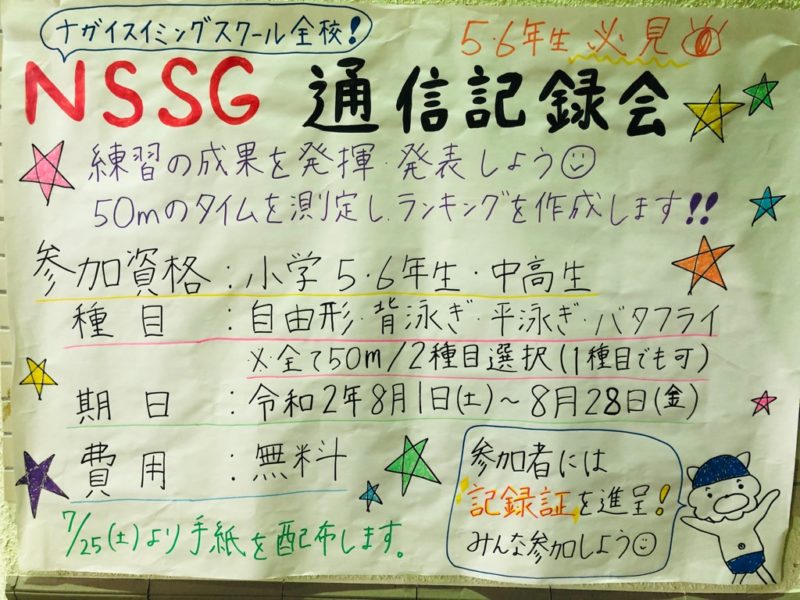 ナガイスイミングスクール全校!
5・6年生 必見
NSSG 通信記録会
練習の成果を発揮・発表しよう
50mのタイムを測定し、ランキングを作成します!!
参加資格:小学5・6年生・中高生
種目:自由形・背泳ぎ・平泳ぎ・バタフライ
※全て50m/2種目選択(1種目でも可)
期日:令和2年8月1日(土)~8月28日(金)
費用:無料
7/25(土)より手紙を配布します。
参加者には
記録証を進呈!
みんな参加しよう